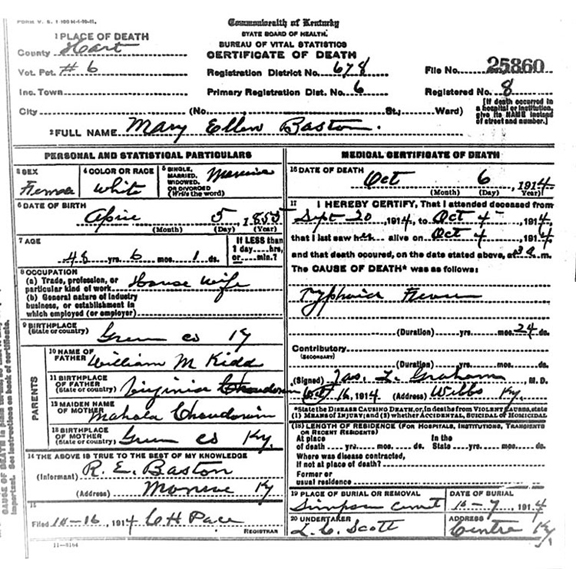 FORM V. S. 1
Commonwealth of Kentucky
STATE BOARD OF HEALTH.
BUREAU OF VITAL STATISTICS
CERTIFICATE OF DEATH
1 PLACE OF DEATH
County Hart
Vot. Pct. #6
Registration District No. 678
File No. 25860
Inc. Town
Primary Registration Dist. No. 6
Registered No. 8
City (No. St., Ward)
[If death occurred in a hospital or institution, give its NAME instead of street and number.]
2 FULL NAME Mary Ellen Baston.
PERSONAL AND STATISTICAL PARTICULARS
3 SEX
Female
4 COLOR OR RACE
White
5 SINGLE, MARRIED, WIDOWED, OR DIVORCED (Write the word)
6 DATE OF BIRTH
5
(Month) (Day) (Year)
7 AGE
yrs. 6 mos. 1 ds.
If LESS than 1 day, hrs. or min.?
8 OCCUPATION
(a) Trade, profession, or particular kind of work House wife
(b) General nature of industry business, or establishment in which employed (or employer)
9 BIRTHPLACE
(State or country) Green co Ky
PARENTS
10 NAME OF FATHER William M Kidd
11 BIRTHPLACE OF FATHER
(State or country) Virginia
12 MAIDEN NAME OF MOTHER Mahala
13 BIRTHPLACE OF MOTHER
(State or country) Green co Ky.
14 THE ABOVE IS TRUE TO THE BEST OF MY KNOWLEDGE
(Informant) R. E. Baston
(Address) Monroe Ky
15
Filed 10-16, 1914 C H Pace
REGISTRAR
11-3184
MEDICAL CERTIFICATE OF DEATH
16 DATE OF DEATH
Oct 6, 1914
(Month) (Day) (Year)
17 I HEREBY CERTIFY, That I attended deceased from
Sept-20 1914, to Oct 4-, 1914
that I last saw her alive on Oct 4-, 191
and that death occured, on the date stated above, at m.
The CAUSE OF DEATH* was as follows:
Typhoid Fever
(Duration) yrs. mos. 24 ds.
Contributory
(SECONDARY)
(Duration) yrs. mos. ds.
(Signed) Jas. L. Graham M. D.
Oct 16, 1914 (Address) Ky.
*State the DISEASE CAUSING DEATH, or, in deaths from VIOLENT CAUSES, state (1) MEANS OF INJURY; and (2) whether ACCIDENTAL, SUICIDAL or HOMICIDAL.
18 LENGTH OF RESIDENCE (FOR HOSPITALS, INSTITUTIONS, TRANSIENTS OR RECENT RESIDENTS)
At place of death yrs. mos. ds. In the State yrs. mos. ds.
Where was disease contracted, if not at place of death?
Former or usual residence
19 PLACE OF BURIAL OR REMOVAL
Simpson
DATE OF BURIAL
10-7, 1914
20 UNDERTAKER
L. C. Scott
ADDRESS
Centre Ky
CAUSE OF DEATH
important. See instructions on back of certificate.